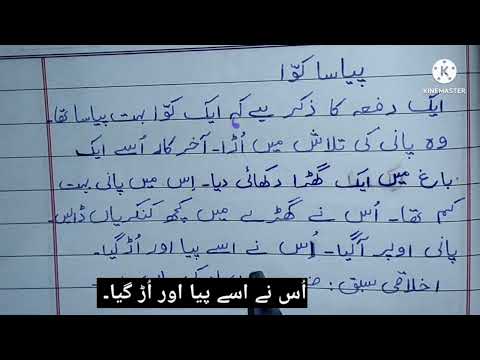 پیاسا کوّا
KINEMASTER
ایک دفعہ کا ذکر ہے کہ ایک کوّا بہت پیاسا تھا۔
وہ پانی کی تلاش میں اُڑا۔ آخر کار اُسے ایک
باغ میں ایک گھڑا دکھائی دیا۔ اِس میں پانی بہت
کم تھا۔ اُس نے گھڑے میں کچھ کنکریاں ڈالیں۔
پانی اوپر آ گیا۔ اُس نے اسے پیا اور اُڑ گیا۔
اخلاقی سبق:
اُس نے اسے پیا اور اُڑ گیا۔